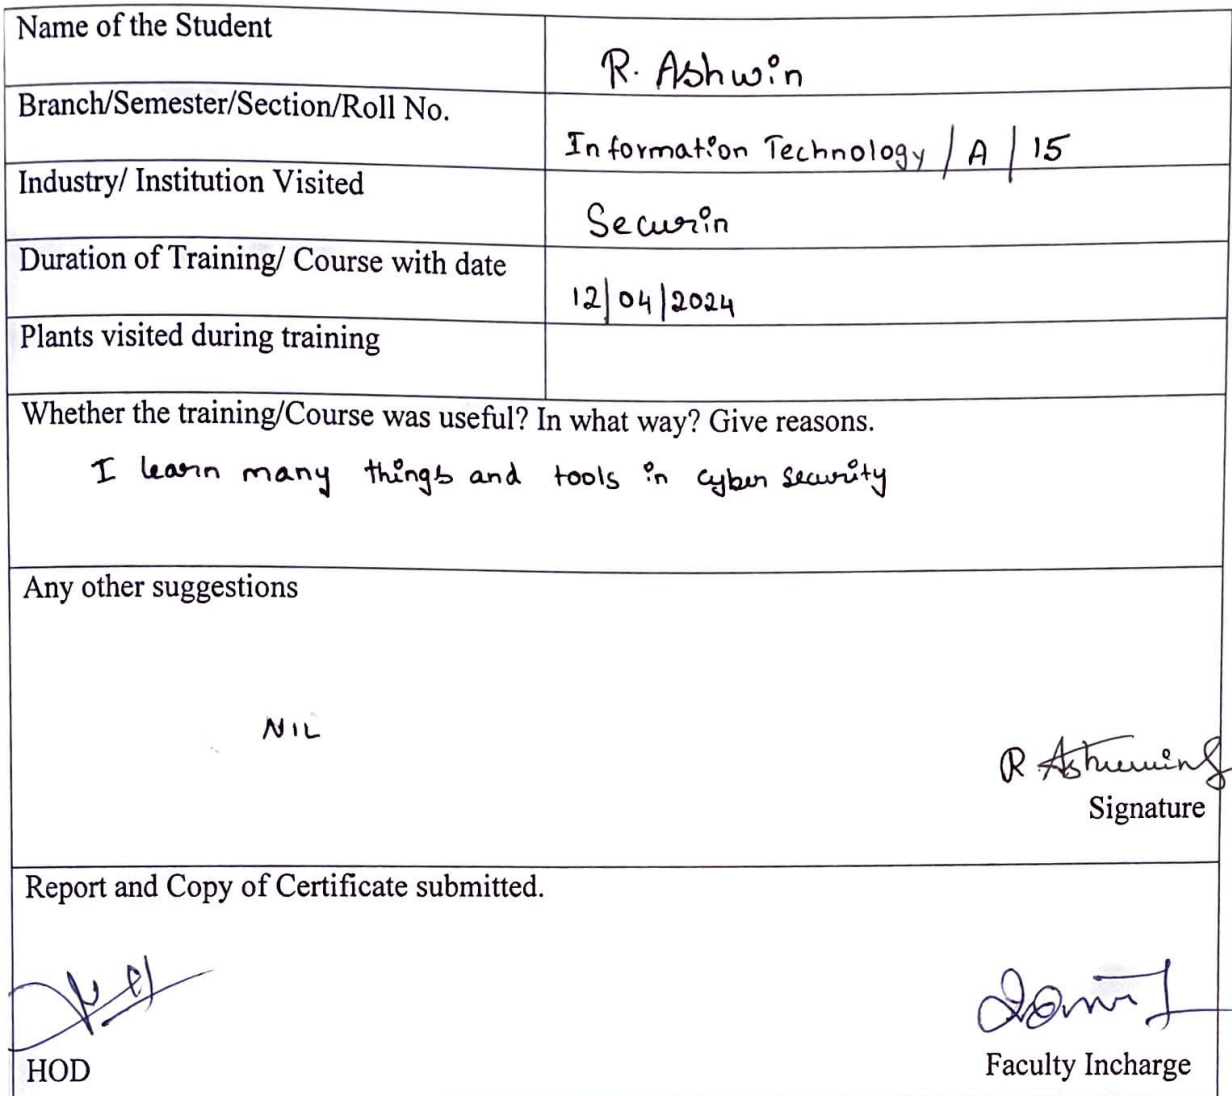 Name of the Student
R. Ashwin
Branch/Semester/Section/Roll No.
Information Technology / A / 15
Industry/ Institution Visited
Securin
Duration of Training/ Course with date
12/04/2024
Plants visited during training
Whether the training/Course was useful? In what way? Give reasons.
I learn many things and tools in cyber security
Any other suggestions
NIL
Signature
Report and Copy of Certificate submitted.
HOD
Faculty Incharge